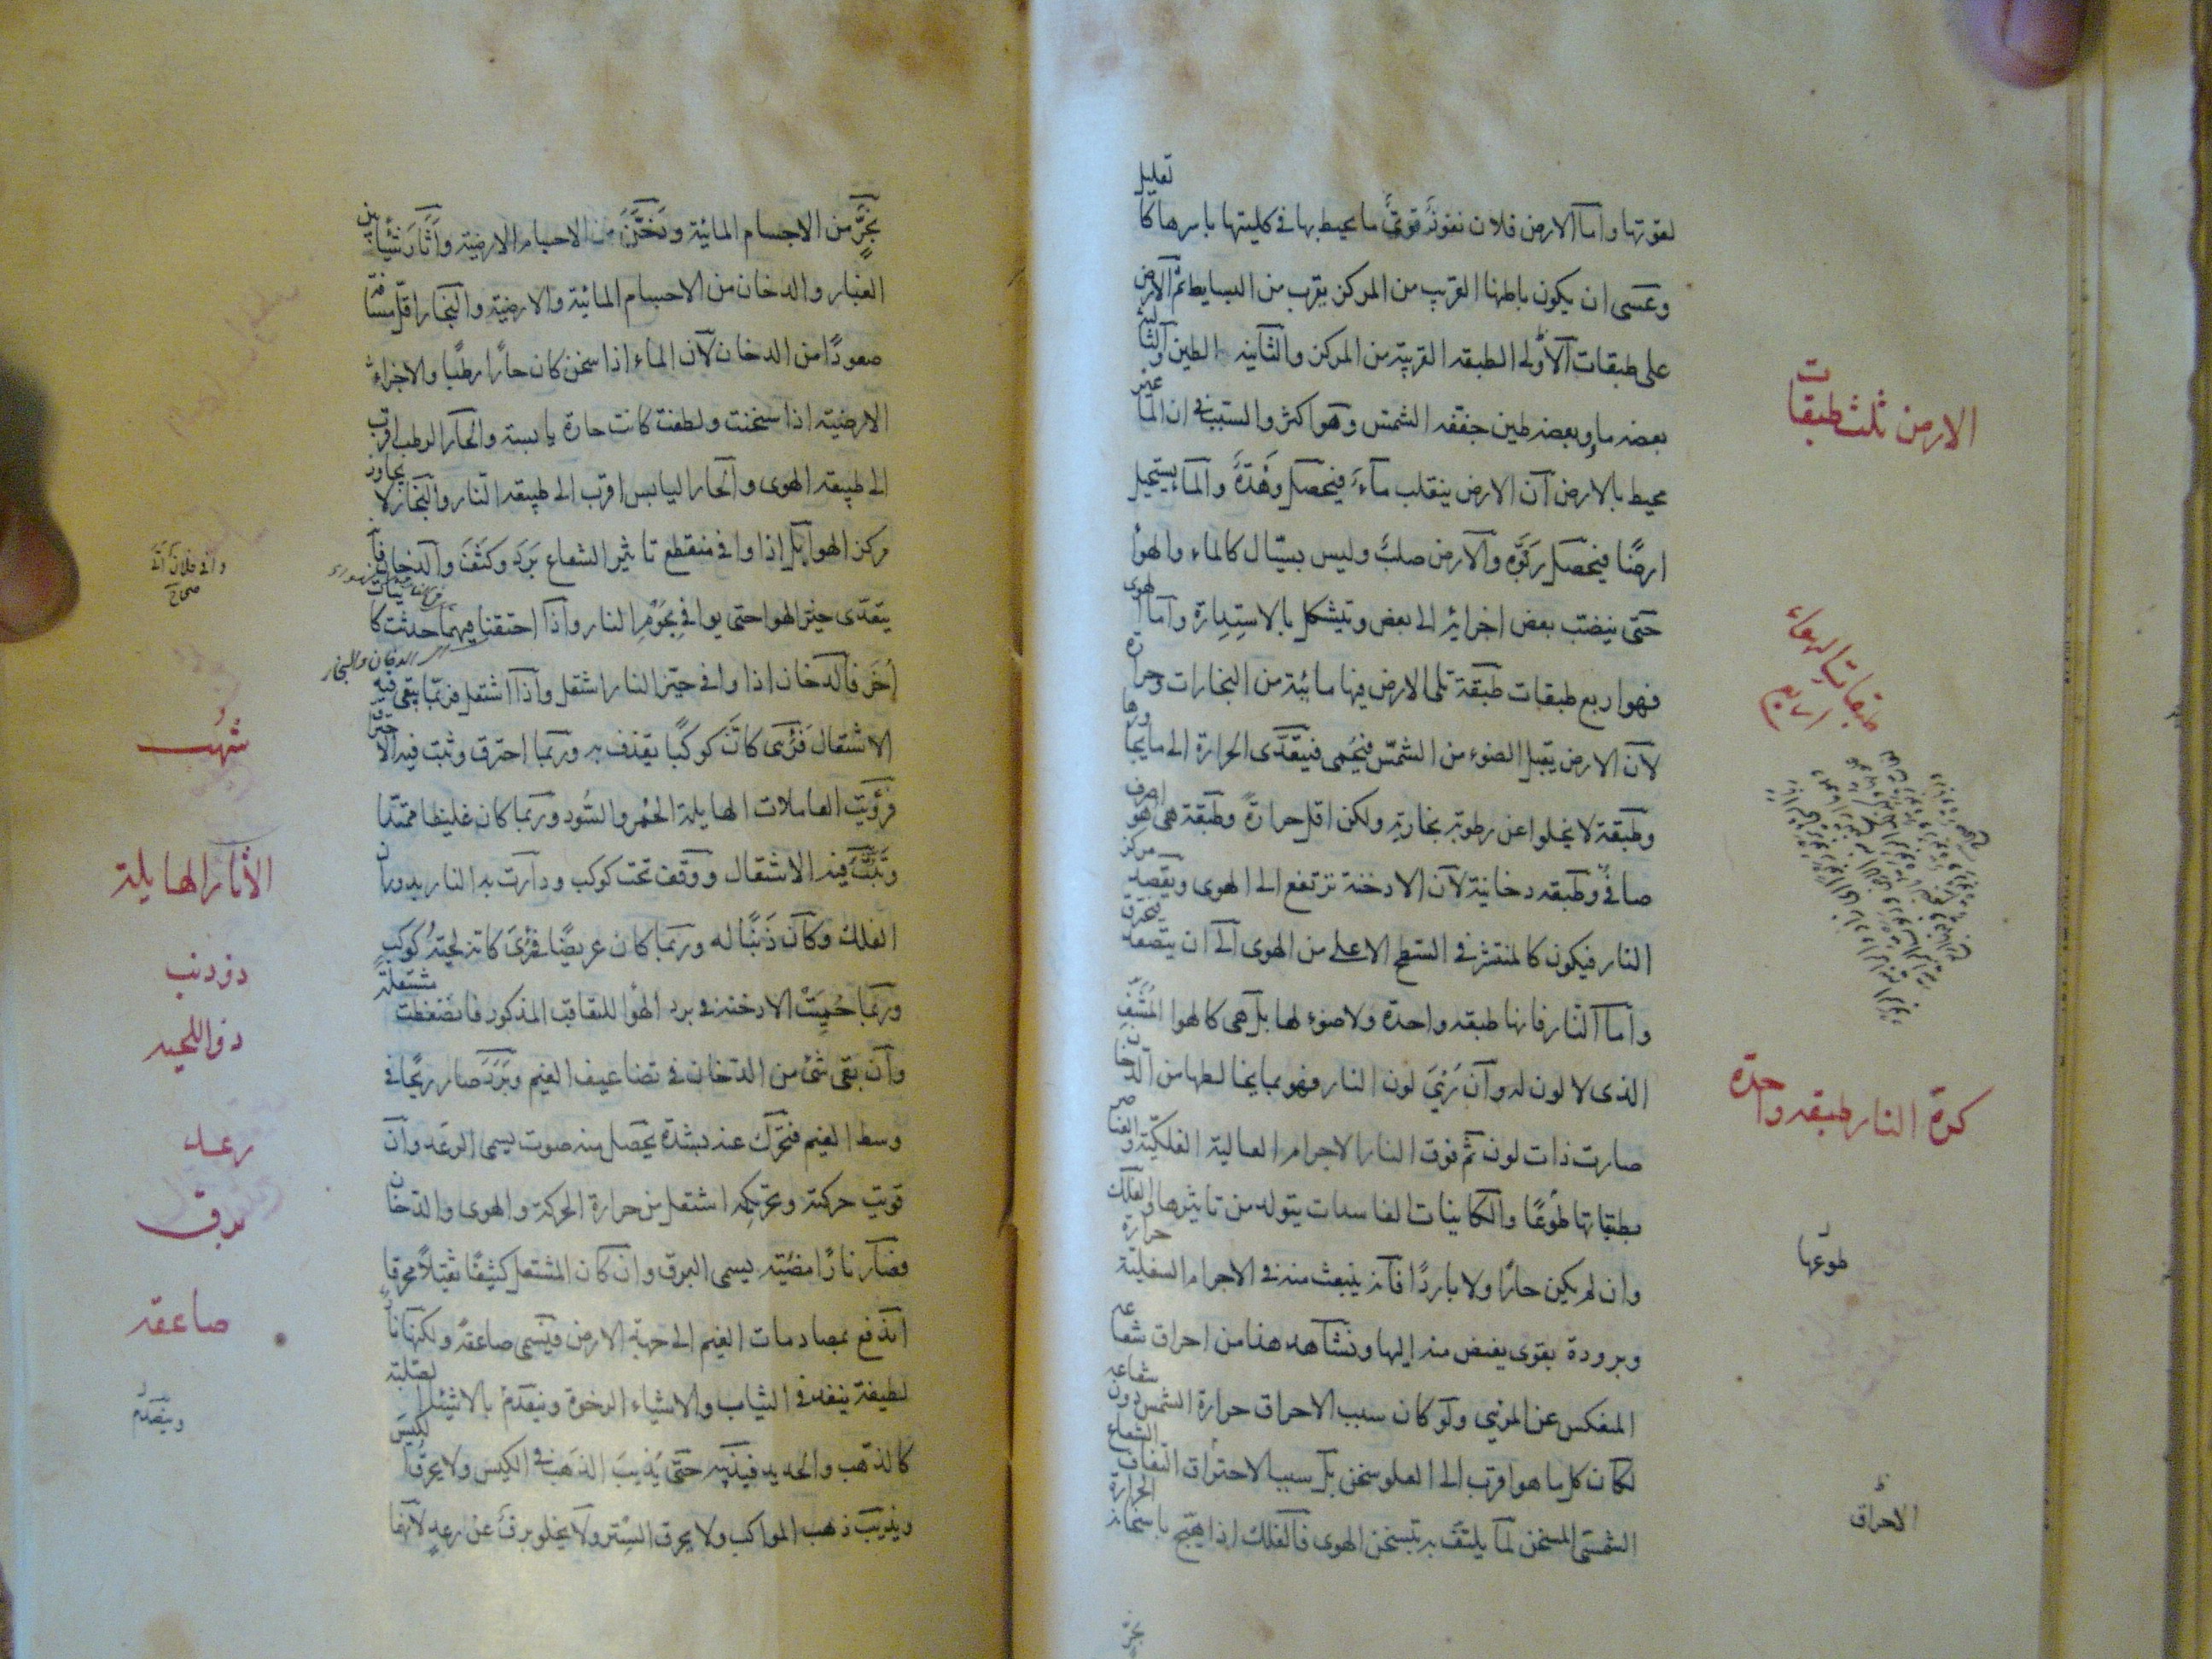 تعليل
لقوتها واما الارض فلان نفوذ قوى ما يحيط بها في كليتها باسرها كا
وعسى ان يكون باطنها القريب من المركز يقرب من البسايط ثم الارض
على طبقات الاولى الطبقه القريبة من المركز والثانيه الطين والثالثه
بعضه ماء وبعضه طين جففه الشمس وهو اكثر والسبب في ان الماء غير
محيط بالارض ان الارض ينقلب ماء فيحصل وهدة والماء يستحيل
ارضًا فيحصل ربوه والارض صلب وليس بسيّال كالماء والهوا
حتى ينضب بعض اجزائه الى بعض ويتشكل بالاستدارة واما الهوى
فهو اربع طبقات طبقة تلى الارض فيها مائية من البخارات وحرارة
لان الارض يقبل الضوء من الشمس فيحمى فيتعدّى الحرارة الى ما يجاورها
وطبقة لا يخلوا عن رطوبة بخارية ولكن اقل حرارة وطبقة هى هوا صرف
صافي وطبقه دخانية لان الادخنة ترتفع الى الهوى ويقصد مركز
النار فيكون كالمنتشر في السطح الاعلى من الهوى الى ان يتصعد فيحترق
واما النار فانها طبقه واحدة ولا ضوء لها بل هى كالهوا المشف
الذى لا لون له وان رئي لون النار فهو بما يخالطها من الدخان
صارت ذات لون ثم فوق النار الاجرام العالية الفلكية والعناصر
بطبقاتها طوعًا والكاينات الفاسدات يتولد من تاثيرها والفلك
وان لم يكن حارًا ولا باردًا فانه ينبعث منه في الاجرام السفلية حرارة
وبرودة بقوى يفيض منه اليها ونشاهد هذا من احراق شعاعه
المنعكس عن المرئي ولو كان سبب الاحراق حرارة الشمس دون شعاعه
لكان كل ما هو اقرب الى العلو سخن بل سبب الاحتراق التفاف الشعاع
الشمسى المسخن لما يلتف به تسخن الهوى فالفلك اذا هيّج باسخانه الحرارة
بخر
الارض ثلث طبقات
طبقات الهواء اربع
كرة النار طبقه واحدة
طوعها
الاحراق
بخّر من الاجسام المائية ودخّن من الاجسام الارضية واثار شيئا بين
الغبار والدخان من الاجسام المائية والارضية والبخار اقل مسافة
صعودًا من الدخان لان الماء اذا سخن كان حارًا رطبًا والاجزاء
الارضية اذا سخنت ولطفت كانت حارة يابسة والحار الرطب اقرب
الى طبيعه الهوى والحار اليابس اقرب الى طبيعه النار والبخار لا يجاوز
مركز الهوا بل اذا وافى منقطع تاثير الشعاع برد وكثف والدخان فانه
يتعدى حيز الهوا حتى يوافي تخوم النار واذا احتقنا فيهما حدثت كاينات
اُخر فالدخان اذا وافى حيّز النار اشتعل واذا اشتعل فربما بقى فيه
الاشتعال فرُئى كانّه كوكبًا يقذف به وربما احترق وثبت فيه الاحتراق
فرؤيت العلامات الهايلة الحُمر والسُود وربما كان غليظا ممتدًا
وثبت فيه الاشتعال ووقف تحت كوكب ودارت به النار بدوران
الفلك وكان ذَنَبًا له وربما كان عريضًا فرُئى كانه لحية كوكب
وربما حُمِيَت الادخنة في برد الهوا للتعاقب المذكور فانضغطت مشتعلة
وان بقى شئ من الدخان في تضاعيف الغيم وبَرَدَ صار ريحًا في
وسط الغيم فتحرك عنه بشدّة يحصل منه صوت يسمى الرعد وان
قويت حركته وتحريكه اشتعل من حرارة الحركة والهوى والدخان
فصار نارًا مضيئه يسمى البرق وان كان المشتعل كثيفًا ثقيلًا محرقا
اندفع بمصادمات الغيم الى جهة الارض فيسمى صاعقة ولكنها نار
لطيفة ينفد في الثياب والاشياء الرخوة ويتصدم بالاشياء الصلبة
كالذهب والحديد فيذيبه حتى يُذيب الذهب في الكيس ولا يحرق الكيس
ويذيب ذهب المراكب ولا يحرق السير ولا يخلو برق عن رعد لانهما
الدخان والبخار
صحاح
شُهب
الاثار الهايلة
ذو ذنب
ذو اللحيه
رعد
برق
صاعقه
ويتصدم